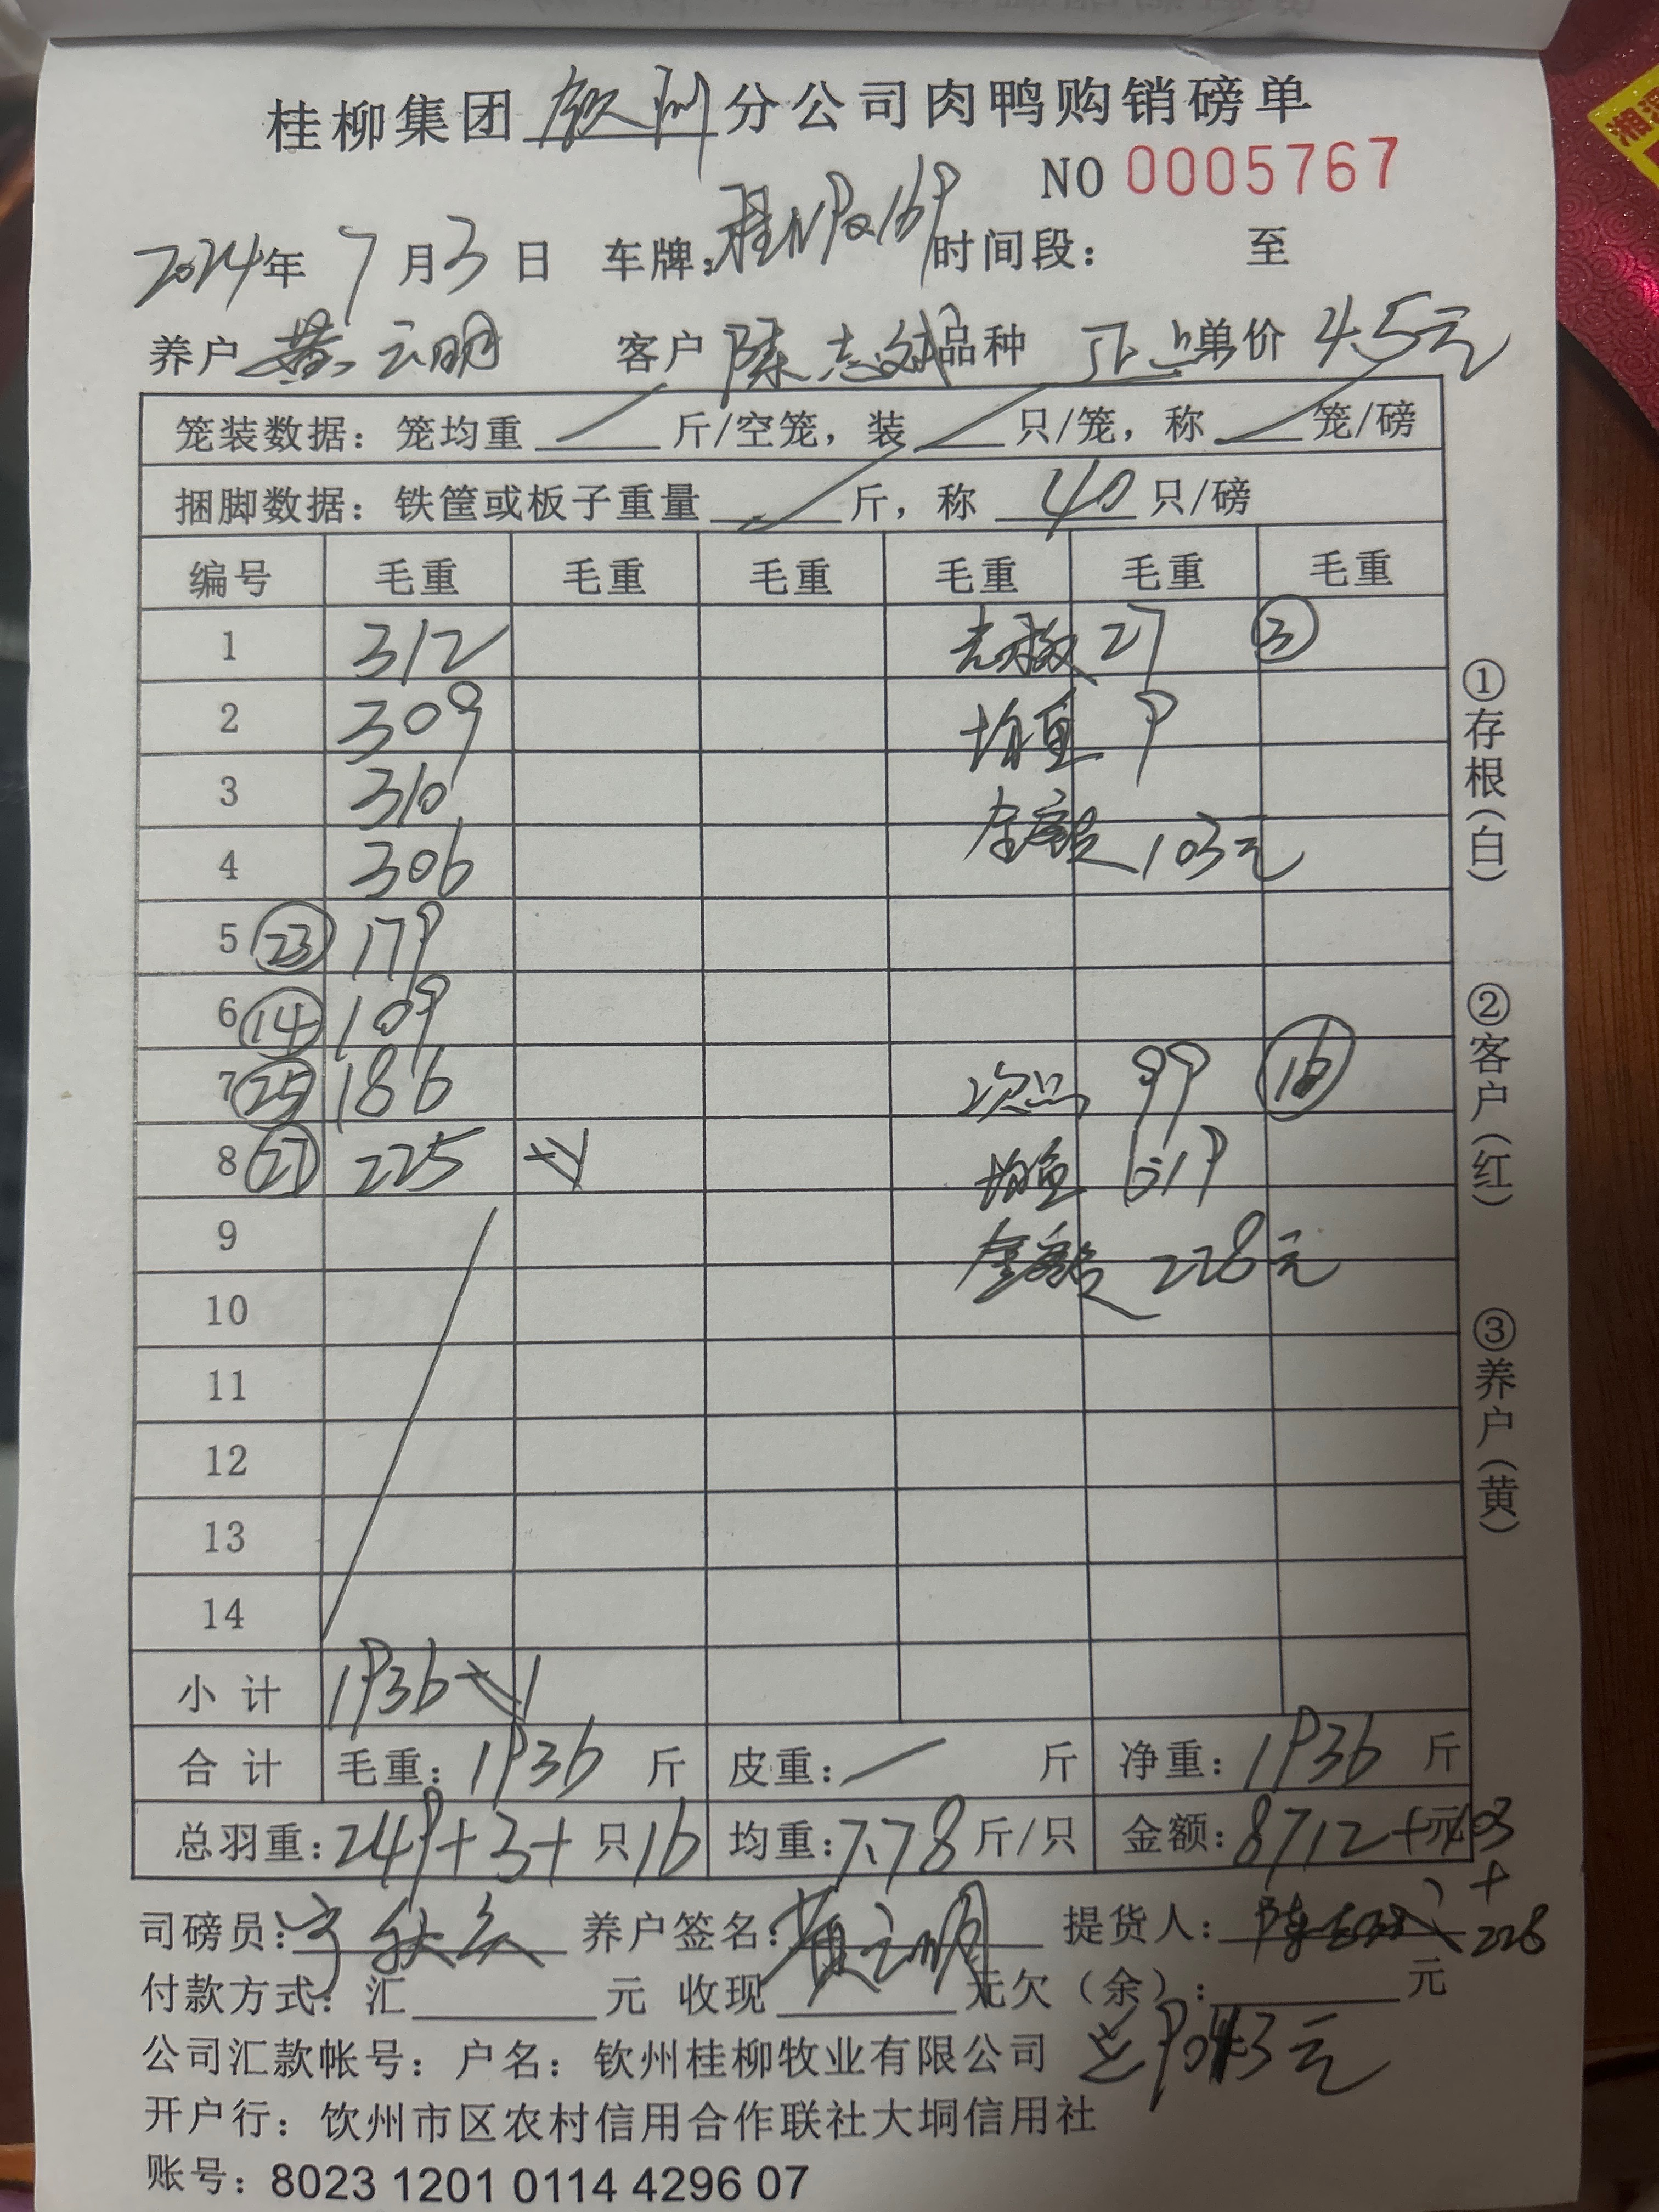 桂柳集团钦州分公司肉鸭购销磅单
NO 0005767
2024年 7月3日 车牌: 时间段: 至
养户 黄云明 客户 陈志斌 品种 单价 4.5元
笼装数据: 笼均重 斤/空笼, 装 只/笼, 称 笼/磅
捆脚数据: 铁筐或板子重量 斤, 称 40 只/磅
编号 毛重 毛重 毛重 毛重 毛重 毛重
1 312 27 ③
2 309 均重 9
3 310
4 306 金额 103元
5 ㉓ 179
6 ⑭ 109
7 ㉕ 186 次品 99 ⑯
8 225 均重 6.19
9 金额 228元
10
11
12
13
14
小计 1936
合计 毛重: 1936 斤 皮重: 斤 净重: 1936 斤
总羽重: 249+3+ 只 16 均重: 7.78 斤/只 金额: 8712+元103
+
228
司磅员: 养户签名: 黄云明 提货人: 陈志斌
付款方式: 汇 元 收现 元欠(余): 元
公司汇款帐号: 户名: 钦州桂柳牧业有限公司 总9043元
开户行: 饮州市区农村信用合作联社大垌信用社
账号: 8023 1201 0114 4296 07
①存根(白)
②客户(红)
③养户(黄)